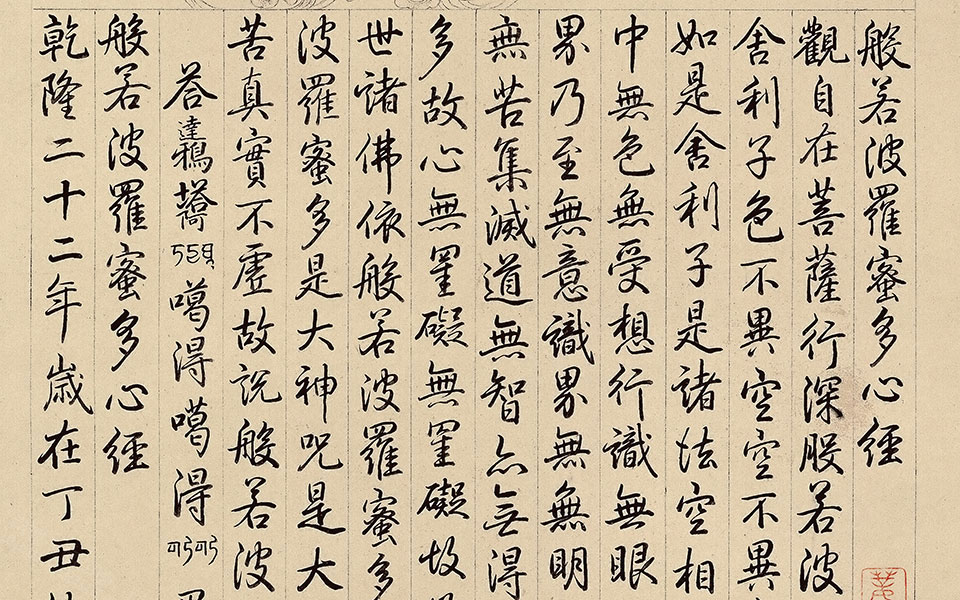 般若波羅蜜多心經
觀自在菩薩行深般若波
舍利子色不異空空不異
如是舍利子是諸法空相
中無色無受想行識無眼
界乃至無意識界無無明
無苦集滅道無智亦無得
多故心無罣礙無罣礙故
世諸佛依般若波羅蜜多
波羅蜜多是大神咒是大
苦真實不虛故說般若波
答達鴉塔噶得噶得
般若波羅蜜多心經
乾隆二十二年歲在丁丑